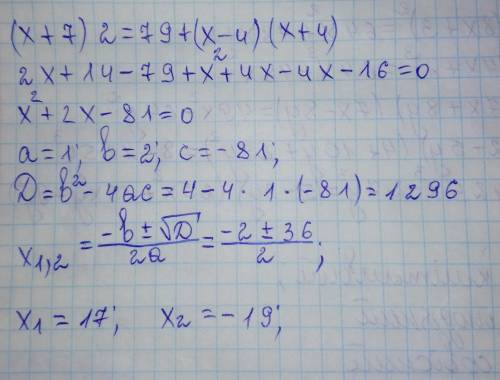 (x+7) 2=79+(x-4)(x+4)
2x+14-79+x²+4x-4x-16=0
x²+2x-81=0
a=1; b=2; c=-81;
D=b²-4ac=4-4·1·(-81)=1296
x₁,₂=(-b±√D)/2a=(-2±36)/2;
x₁=17; x₂=-19;